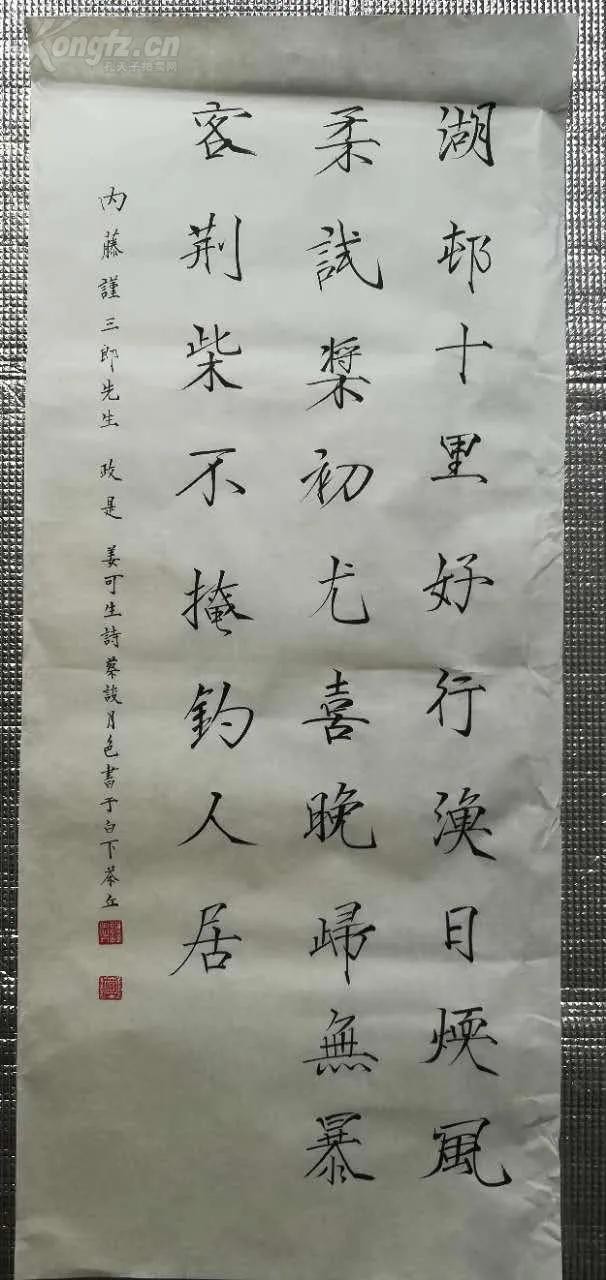 湖邨十里好行漁日煗風
柔試槳初尤喜晚歸無暴
客荆柴不掩釣人居
內藤謹三郎先生 政是 姜可生詩蔡談月色書于白下茶丘
Kongfz.cn
孔夫子拍卖网